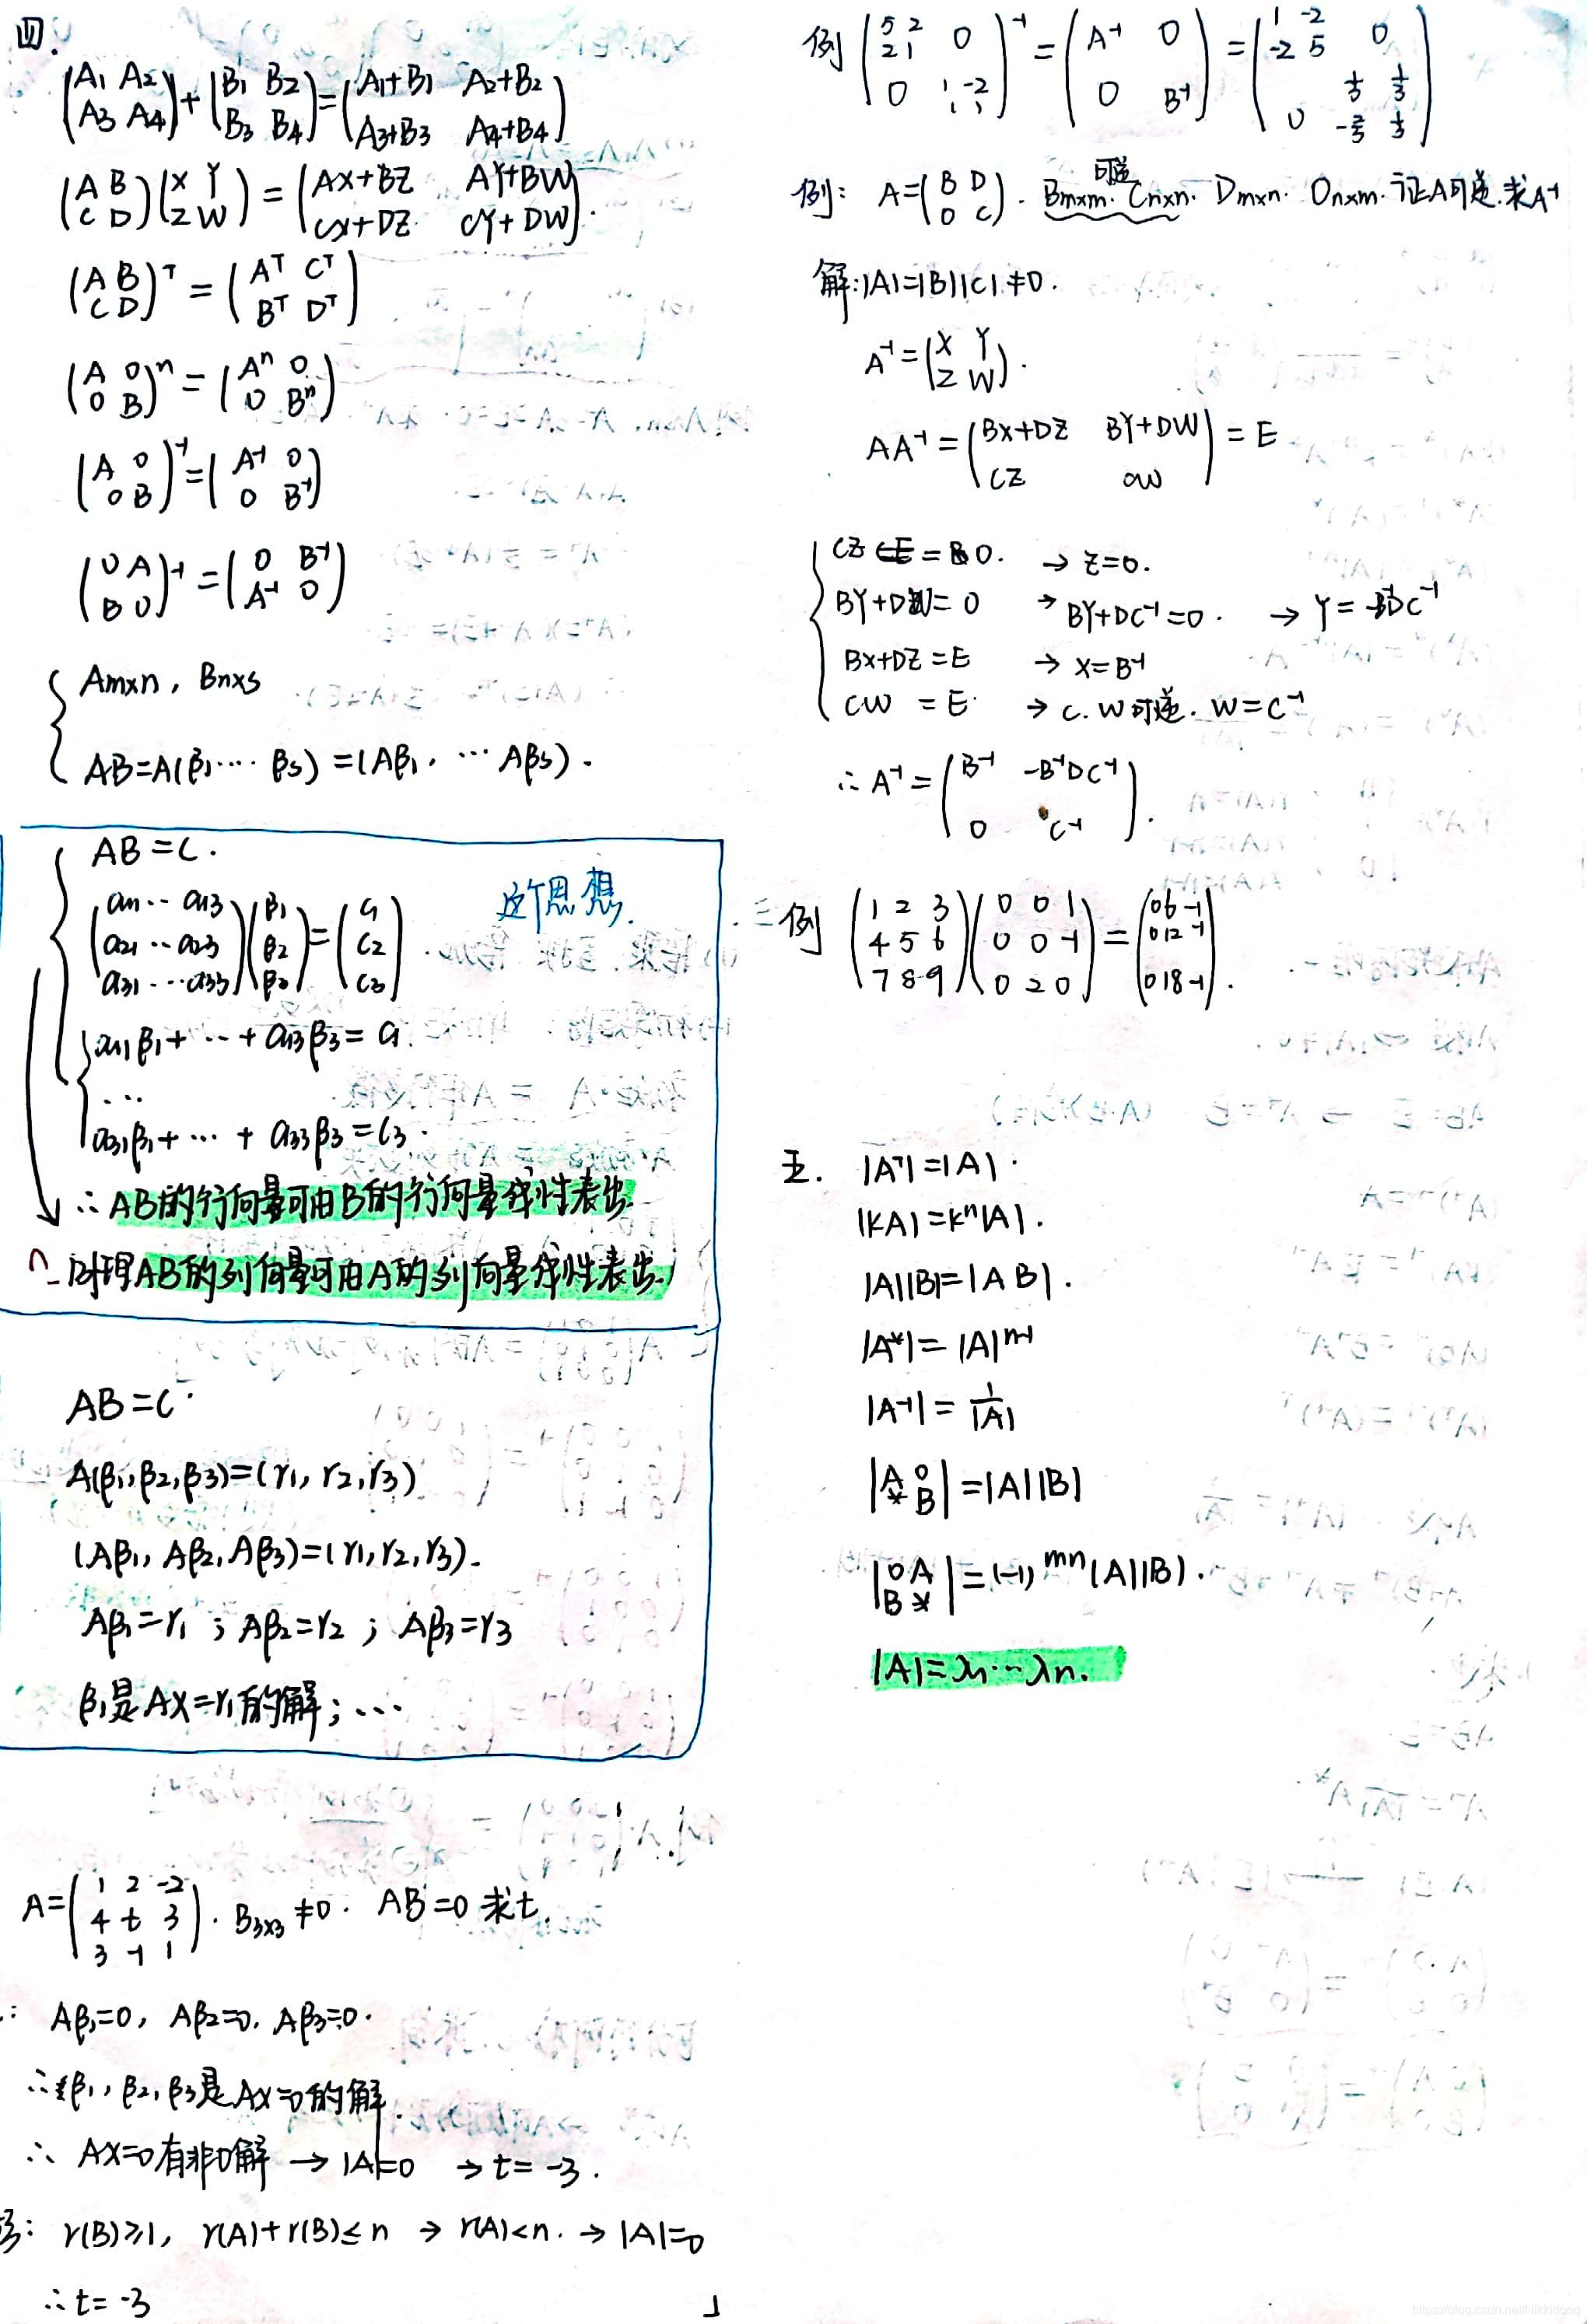 四.
(A₁ A₂; A₃ A₄) + (B₁ B₂; B₃ B₄) = (A₁+B₁ A₂+B₂; A₃+B₃ A₄+B₄)
(A B; C D)(X Y; Z W) = (AX+BZ AY+BW; CX+DZ CY+DW).
(A B; C D)ᵀ = (Aᵀ Cᵀ; Bᵀ Dᵀ)
(A 0; 0 B)ⁿ = (Aⁿ 0; 0 Bⁿ)
(A 0; 0 B)⁻¹ = (A⁻¹ 0; 0 B⁻¹)
(0 A; B 0)⁻¹ = (0 B⁻¹; A⁻¹ 0)
Am×n, Bn×s
AB=A(β₁…… βs) = (Aβ₁, … Aβs).
AB=C.
(a₁₁ … a₁₃; a₂₁ … a₂₃; a₃₁ … a₃₃)(β₁; β₂; β₃) = (c₁; c₂; c₃)
这个思想.
a₁₁β₁+ … + a₁₃β₃ = c₁
…
a₃₁β₁+ … + a₃₃β₃ = c₃.
∴ AB的行向量可由B的行向量线性表出.
同理AB的列向量可由A的列向量线性表出.
AB=C.
A(β₁,β₂,β₃)=(r₁, r₂, r₃)
(Aβ₁, Aβ₂, Aβ₃)=(r₁,r₂,r₃).
Aβ₁=r₁ ; Aβ₂=r₂ ; Aβ₃=r₃
β₁是AX=r₁的解; …
A=(1 2 -2; 4 t 3; 3 -1 1). B₃ₓ₃≠0. AB=0 求t.
: Aβ₁=0, Aβ₂=0, Aβ₃=0.
∴ β₁, β₂, β₃是AX=0的解.
∴ AX=0有非0解 → |A|=0 → t= -3.
: r(B)≥1, r(A)+r(B)≤n → r(A)<n. → |A|=0
∴ t= -3
例 (5 2 0; 2 1; 0 1 -2; 1 1)⁻¹ = (A⁻¹ 0; 0 B⁻¹) = (1 -2 0; -2 5; 1/3 2/3; 0 -1/3 1/3)
例: A=(B D; 0 C). Bm×m. Cn×n. 可逆 Dm×n. 0n×m. 证A可逆.求A⁻¹
解:|A|=|B||C|≠0.
A⁻¹=(X Y; Z W).
AA⁻¹ = (BX+DZ BY+DW; CZ CW) = E
CZ = 0. → Z=0.
BY+DW= 0 → BY+DC⁻¹=0. → Y= -B⁻¹DC⁻¹
BX+DZ=E → X=B⁻¹
CW = E. → C. W可逆. W=C⁻¹
∴ A⁻¹ = (B⁻¹ -B⁻¹DC⁻¹; 0 C⁻¹).
例 (1 2 3; 4 5 6; 7 8 9)(0 0 1; 0 0 -1; 0 2 0) = (0 6 -1; 0 12 -1; 0 18 -1).
五. |Aᵀ|=|A|.
|kA|=kⁿ|A|.
|A||B|=|AB|.
|A*|=|A|ⁿ⁻¹
|A⁻¹| = 1/|A|
|A 0; * B| = |A||B|
|0 A; B *| = (-1)ᵐⁿ|A||B|.
|A|=λ₁…λn.
https://blog.csdn.net/Nikkidong